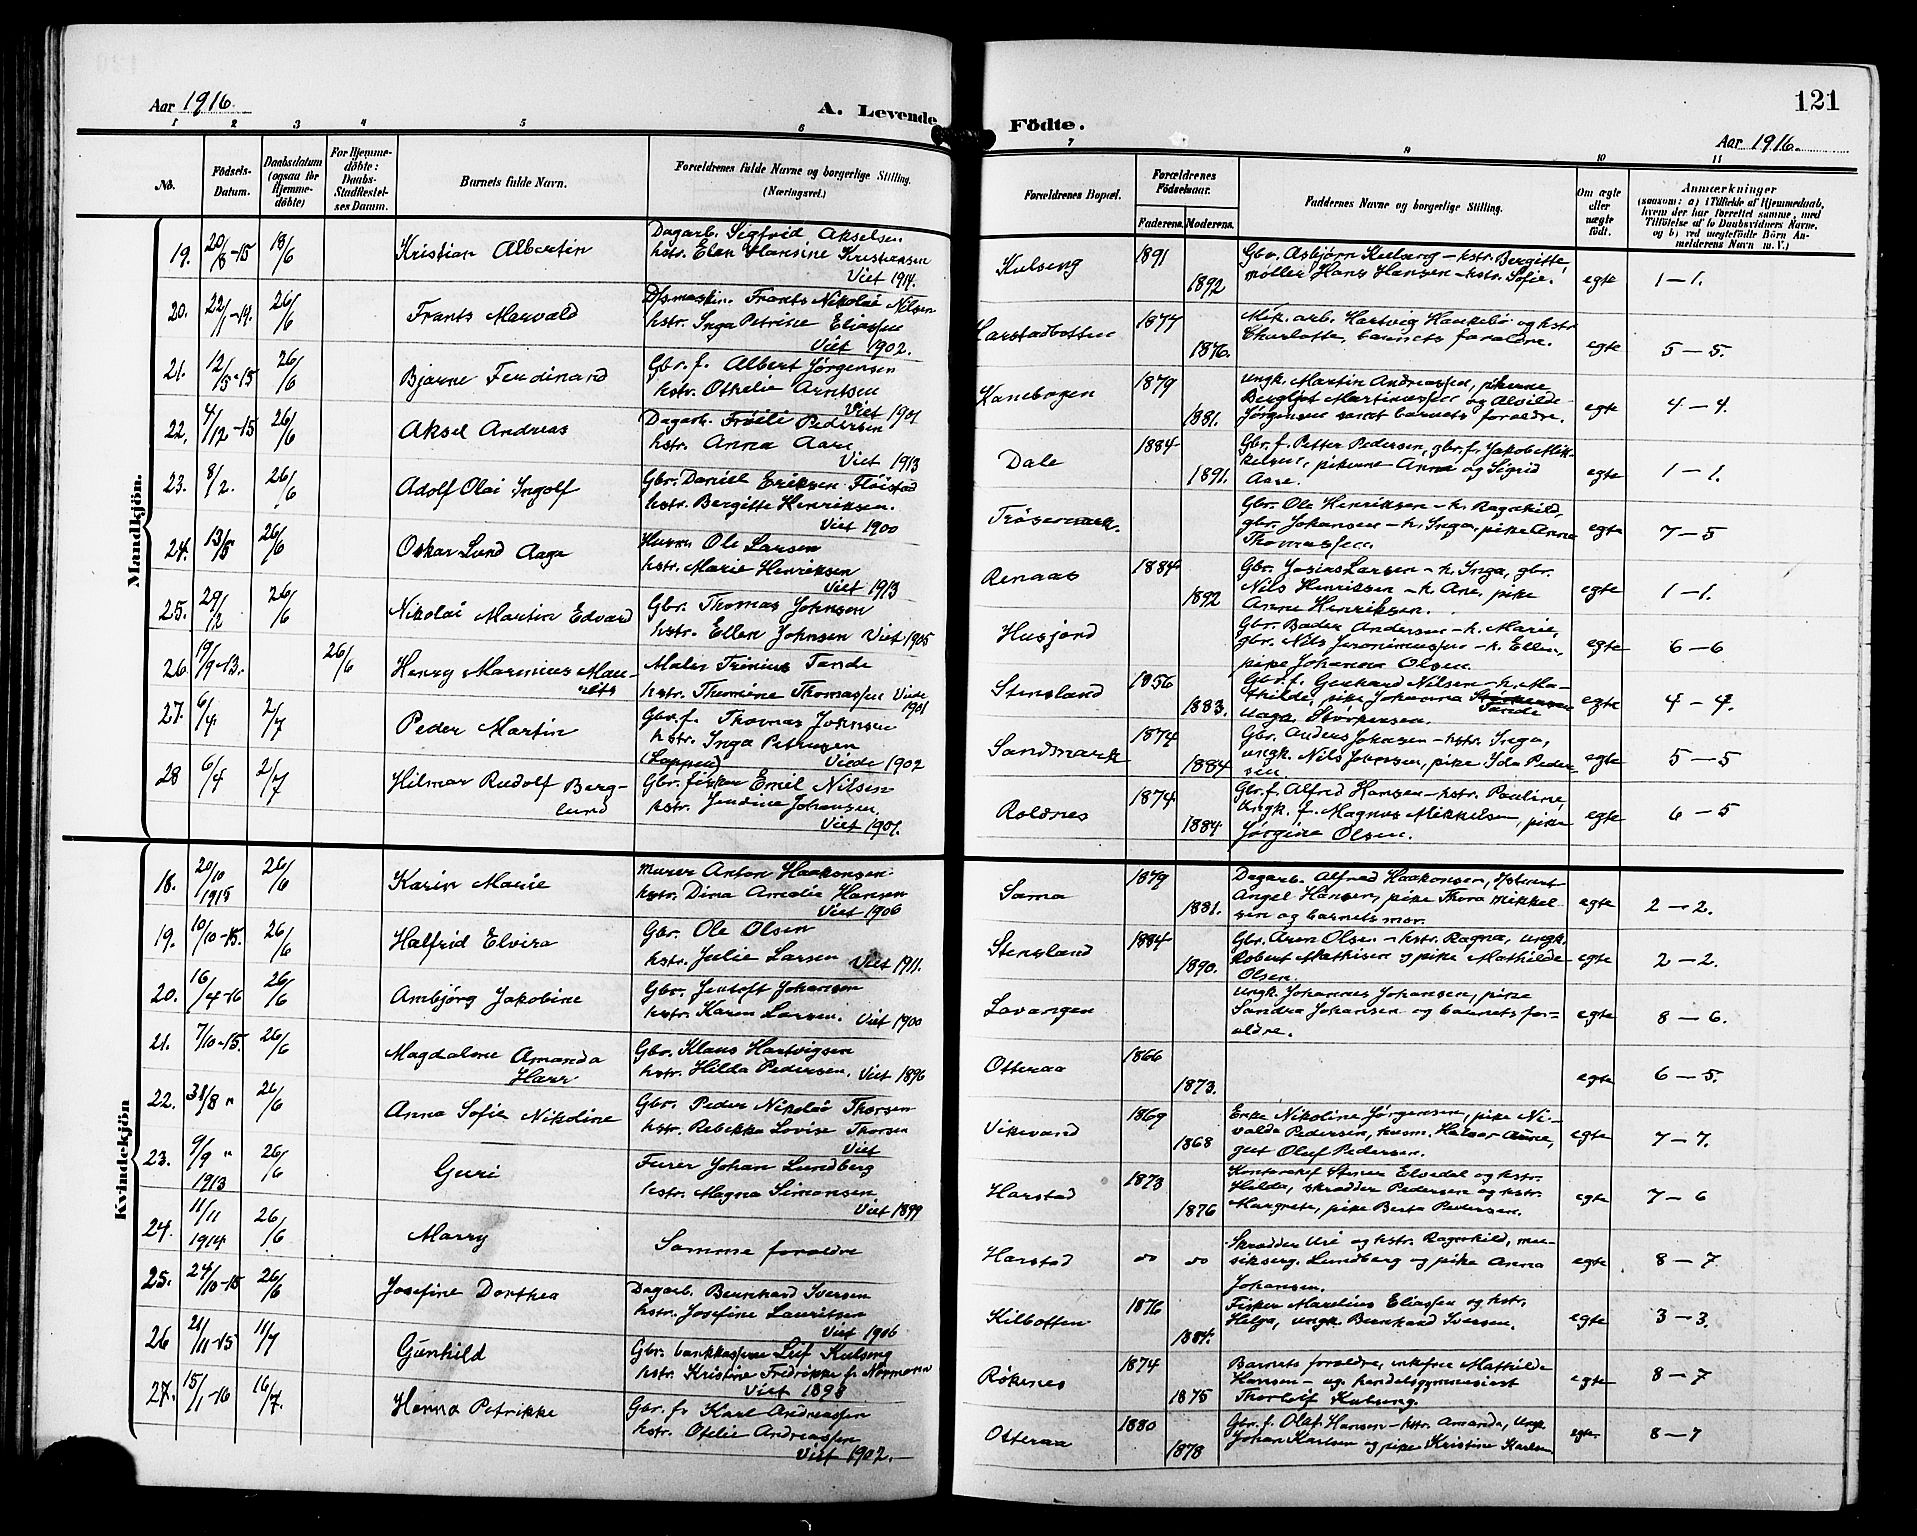 Aar 1916.
A. Levende
1 2 3 4 5 6
No.
Födsels-
Datum.
Daabsdatum
(ogsaa for
Hjemme-
döbte)
For Hjemme-
döbte:
Daabs-
Stadfæstel-
ses Datum.
Barnets fulde Navn.
Forældrenes fulde Navne og borgerlige Stilling.
(Næringsvei.)
Mandkjön.
19. 20/8-15 18/6 Kristian Albertin
Dagarb. Sigfrid Akselsen
hstr. Elen Hansine Kristiansen
Viet 1914.
20. 22/1-14. 26/6 Frants Marvald
Dsmaskin. Frants Nikolai Nilsen
hstr. Inga Petrine Eliassen
Viet 1902.
21. 12/5-15 26/6 Bjarne Ferdinand
Gbr. f. Albert Jørgensen
hstr. Othelie Arntsen
Viet 1901
22. 4/12-15 26/6 Aksel Andreas
Dagarb. Frøili Pedersen
hstr. Anna Aare
Viet 1913
23. 8/2. 26/6 Adolf Olai Ingolf
Gbr. Daniel Eriksen Fløistad
hstr. Bergitte Henriksen.
Viet 1900
24. 13/5 26/6 Oskar Lund Aage
Husm. Ole Larsen
hstr. Marie Henriksen
Viet 1913
25. 29/2 26/6 Nikolai Martin Edvard
Gbr. Thomas Johnsen
hstr. Ellen Johnsen Viet 1905
26. 19/9-13. 26/6 Henry Marinius Mau-
ritz
Maler Trinius Tande
hstr. Thomine Thomassen Viede
1901
27. 6/4 2/7 Peder Martin
Gbr. f. Thomas Johnsen
hstr. Inga Petersen
(Lappen) Viede 1902
28 6/4 2/7 Hilmar Rudolf Berg-
lund
Gbr. fisker Emil Nilsen
hstr. Jendine Johansen
Viet 1907.
Kvindekjön
18. 20/10 1915 26/6 Karin Marie
Murer Anton Haakonsen
hstr. Dina Amalie Hansen
Viet 1906
19. 10/10-15. 26/6 Halfrid Elvira
Gbr. Ole Olsen
hstr. Julie Larsen Viet 1911.
20. 16/4-16 26/6 Ambjørg Jakobine
Gbr. Jentoft Johansen
hstr. Karen Larsen. Viet 1900
21. 7/10-15. 26/6 Magdalene Amanda
Harr
Gbr. Klaus Hartvigsen
hstr. Hilda Pedersen. Viet 1896
22. 31/8 " 26/6 Anna Sofie Nikoline
Gbr. Peder Nikolai Thorsen
hstr. Rebekka Lovise Thorsen
Viet
23. 9/9 " 1913 26/6 Guri
Furer Johan Lundberg
hstr. Magna Simonsen
Viet 1899
24. 11/11 1914 26/6 Marry
Samme foraldre
25. 24/10-15 26/6 Josefine Dorthea
Dagarb. Bernhard Iversen
hstr. Josefine Lauritsen
Viet 1906
26 21/11-15 11/7 Gunhild
Gbr. bankkasserer Leif Kulseng
hstr. Kristine Fredrikke f. Normann
Viet 1898
27. 15/1-16 16/7. Hanna Petrikke
Gbr. f. Karl Andreassen
hstr. Ofelie Andreassen
Viet 1902.
121
Födte.
Aar 1916.
7 9 10 11
Forældrenes Bopæl.
Forældrenes
Födselsaar.
Faderens. Moderens.
Faddernes Navne og borgerlige Stilling.
Om ægte
eller
uægte
födt.
Anmærkninger
(saasom: a) i Tilfælde af Hjemmedaab,
hvem der har forrettet samme, med
Tilföielse af to Daabsvidners Navne,
og b) ved uægtefödte Börn An-
melderens Navn m. V.)
Kulseng 1891 1892
Gbr. Asbjørn Kulseng - hstr. Bergitte,
møller Hans Hansen - hstr. Sofie.
egte 1-1.
Harstadbotten 1874 1876.
Mek. arb. Hartvig Haukebø og hstr
Charlotte, barnets foraldre.
egte 5-5.
Kanebogen 1879 1881.
ungk. Martin Andreassen, pikerne
Bergljot Martinussen og Alvilde
Jørgensen samt barnets foraldre.
egte 4-4.
Dale 1884 1891.
Gbr. f. Petter Pedersen, gbr. f. Jakob Mik-
kelsen, pikerne Anna og Sigrid
Aare.
egte 1-1.
Trøsemark.
Gbr. Ole Henriksen - h. Ragnhild,
gbr. Johansen - h. Inga, pike Anne
Thomassen.
egte 7-5
Renaas 1884 1892
Gbr. Josias Larsen - h. Inga, gbr.
Nils Henriksen - h. Ane, pike
Anne Henriksen.
egte 1-1.
Husjord
Gbr. Bader Andersen - h. Marie,
gbr. Nils Jeronimussen - h. Ellen,
pike Johanna Olsen.
egte 6-6
Stensland 1856 1883.
Gbr. f. Gerhard Nilsen - h. Ma-
thilde, pike Johanna Tande
Storkersen.
egte 4-4.
Sandmark 1874 1884
Gbr. Anders Johnsen - hstr. Inga,
ungk. Nils Johnsen, pike Ida Peder-
sen
egte 5-5
Roldnes 1874 1884.
Gbr. f. Alfred Hansen - hstr. Pauline,
ungk. f. Magnus Mikkelsen, pike
Jørgine Olsen.
egte 6-5
Sama 1879 1881.
Dagarb. Alfred Haakonsen,
Angel Hansen, pike Thora Mikkel-
sen og barnets mor.
egte 2-2.
Stensland 1884 1890.
Gbr. Aron Olsen - hstr. Ragna, ungk.
Robert Mathisen og pike Mathilde
Olsen.
egte 2-2.
Lavangen
ungk. Johannes Johansen, pike
Sandra Johansen og barnets for-
aldre.
egte 8-6.
Otteraa 1866 1873.
egte 6-5.
Vikevand 1869 1868
Enke Nikoline Jørgensen, pike Ni-
valda Pedersen, husm. Halvor Aune,
gut Oluf Pedersen.
egte 7-7.
Harstad 1873 1876
Kontorchef Steiner Elvedal og hstr.
Hilda, skrædder Pedersen og hstr.
Margrete, pike Berta Pedersen.
egte 7-6
Harstad do do
Skrædder Uri og hstr. Ragnhild, mu-
sikserg. Lundberg og pike Anna
Johansen.
egte 8-7
Kilbotten 1876 1884.
Fisker Marelius Eliassen og hstr.
Helga, ungk. Bernhard Iversen.
egte 3-3.
Røkenes 1874 1875
Barnets foraldre, enkefru Mathilde
Hansen - og handelsgymnasiast
Thorleif Kulseng.
egte 8-7
Otteraa 1880 1878
Gbr. f. Olaf Hansen - hstr. Amanda, ungk.
Johan Karlsen og pike Kristine Karlsen
egte 8-7